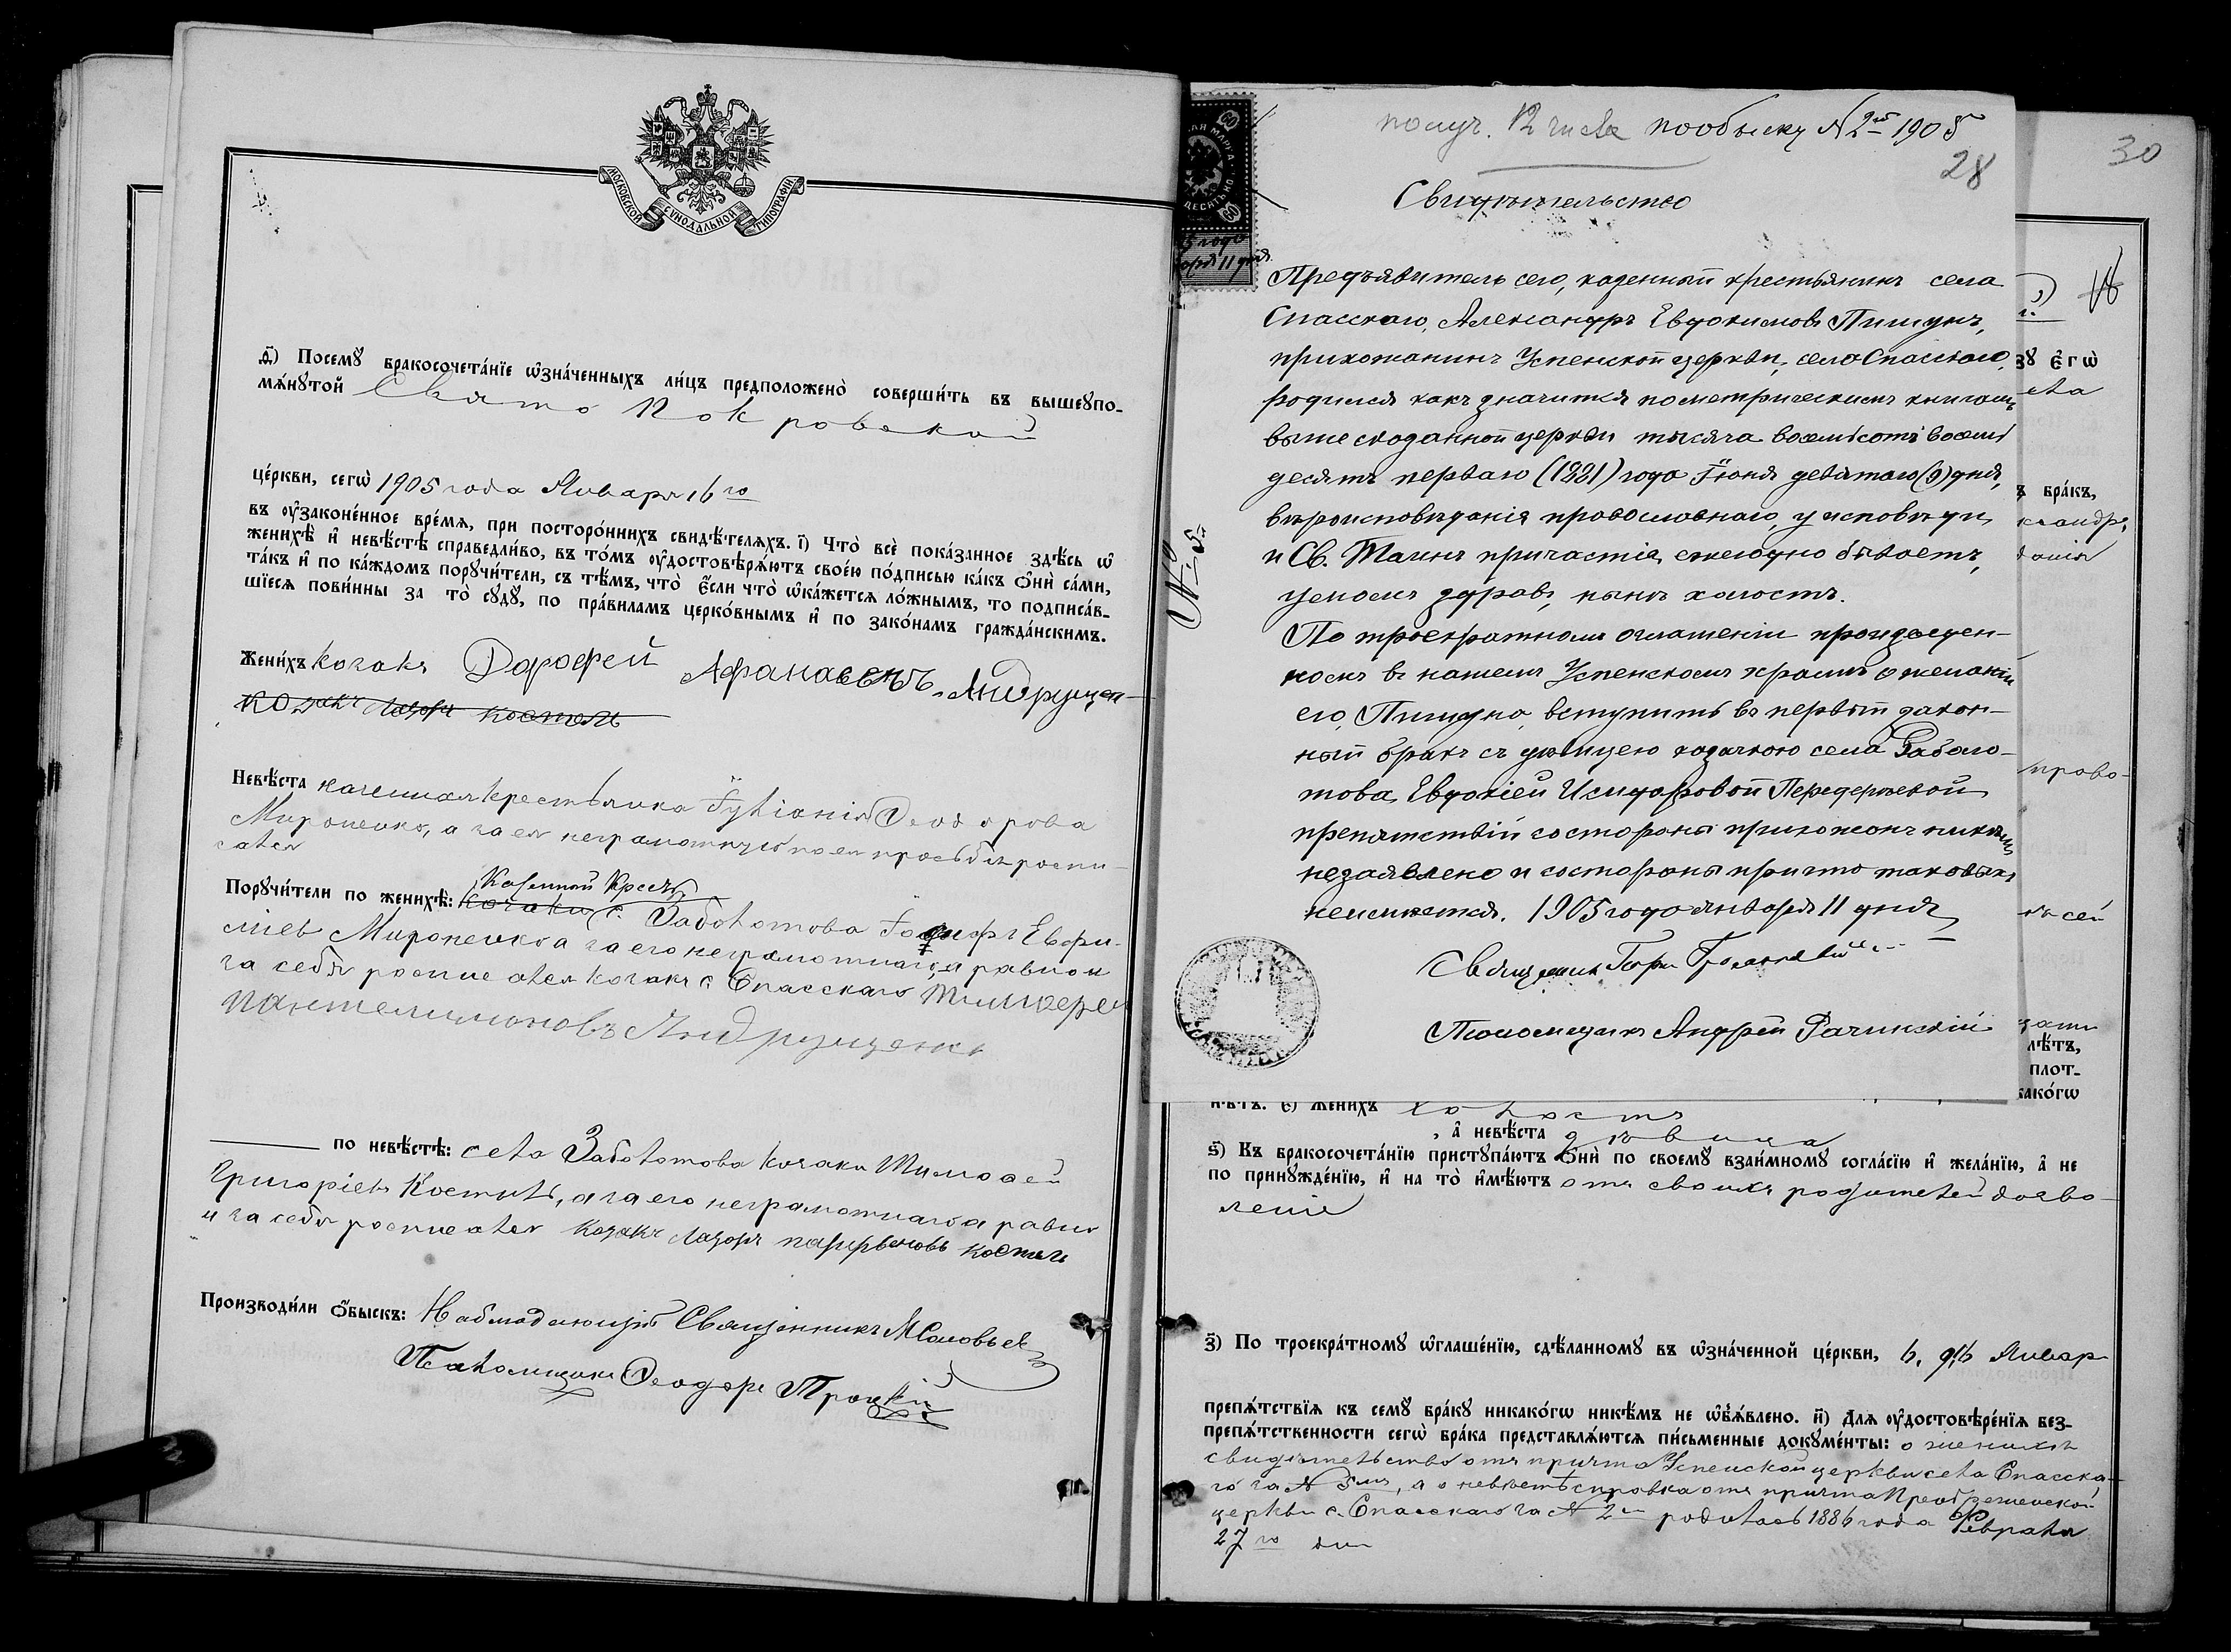 МОСКОВСКОЙ СѴНОДАЛЬНОЙ ТИПОГРАФІИ
д҃) Посемꙋ бракосочета́нїе ѡ҆зна́ченныхъ ли́цъ предположено̀ соверши́ть въ вышеꙋпо-
мѧ́нꙋтой Свято Покровской
це́ркви, сегѡ̀ 1905 года Января 16 го
въ ᲂу҆зако́ненное вре́мѧ, при посторо́ннихъ свидѣ́телѧхъ. і҃) Что̀ всѐ пока́занное здѣ́сь ѡ҆
женихѣ̀ и҆ невѣ́стѣ справедли́во, въ то́мъ ᲂу҆достовѣрѧ́ютъ свое́ю по́дписью ка́къ ѻ҆нѝ са́ми,
та́къ и҆ по ка́ждомъ порꙋчи́тели, съ тѣ́мъ, что̀ є҆́сли что̀ ѡ҆ка́жетсѧ ло́жнымъ, то подписа́в-
шїесѧ пови́нны за то̀ сꙋдꙋ̀, по пра́виламъ церко́внымъ и҆ по зако́намъ гражда́нскимъ.
Жени́хъ козакъ Дорофей Афанасьевъ Андрущен-
козакъ Лазорь костыль
Невѣ́ста казенная крестьянка Іуліанія Ѳеодорова
Мироненко, а за ея неграмотную по ея просьбѣ роспи-
сался
Казенный Крест.
Порꙋчи́тели по женихѣ̀: козаки с. Заболотова Евфи-
міев Мироненко а за его неграмотнаго, а равно и
за себя росписался козакъ с. Спасскаго Тимофей
Пантелимоновъ Андрущенко
по невѣ́стѣ: села Заболотова козаки Тимоѳей
Григоріевъ Костыль, а за его неграмотнаго а равно
и за себя росписался козакъ Лазорь парфеновъ костыль
Производи́ли ѻ҆́быскъ: Наблюдающій Священникъ М Соловьев
Псаломщикъ Ѳеодоръ Троцкій
получ. 12 числа по обыску № 2й 1905
28
Свидѣтельство
60
60
5 года
января 11 дня
№ 5
Предъявитель сего, казенный крестьянинъ села
Спасскаго, Александръ Евдокимовъ Пищунъ,
прихожанинъ Успенской церкви, села Спасскаго,
родился какъ значится по метрическимъ книгамъ
выше сказанной церкви тысяча восемьсотъ восемь
десятъ перваго (1881) года Іюня девятаго (9) дня,
вѣроисповѣданія православнаго, у исповѣди
и Св. Таинъ причастія ежегодно бываетъ,
умомъ здравъ, нынѣ холостъ.
По троекратномъ оглашеніи произведен-
номъ въ нашемъ Успенскомъ храмѣ о желаніи
его, Пищуна, вступить въ первый закон-
ный бракъ съ дѣвицею козачкою села Заболо-
това, Евдокіей Исидоровой Передерѣевой
препятствій со стороны прихожанъ никѣмъ
незаявлено и со стороны причта таковыхъ
неимѣется. 1905 года января 11 дня
Священникъ
Псаломщикъ Андрей Рачинскій
30
є҆гѡ̀
ела
бра́къ,
ксандръ
прово-
лѣ́тъ,
плот-
како́гѡ
нѣ́тъ. є҃) Жени́хъ холостъ
, а҆ невѣ́ста дѣвица
ѕ҃) Къ бракосочета́нїю пристꙋпа́ютъ ѻ҆нѝ по своемꙋ̀ взаи́мномꙋ согла́сїю и҆ жела́нїю, а҆ не
по принꙋжде́нїю, и҆ на то̀ и҆мѣ́ютъ отъ своихъ родителей дозво-
леніе
з҃) По троекра́тномꙋ ѡ҆глаше́нїю, сдѣ́ланномꙋ въ ѡ҆зна́ченной це́ркви, 6, 9, 16 Январ
препѧ́тствїѧ къ семꙋ̀ бра́кꙋ никако́гѡ никѣ́мъ не ѡ҆б̾ѧ́влено. и҃) Длѧ ᲂу҆достовѣре́нїѧ без-
препѧ́тственности сегѡ̀ бра́ка представлѧ́ютсѧ пи́сьменные докꙋме́нты: о женихѣ
свидѣтельство отъ причта Успенской церкви села Спасска-
го за № 5мъ, а о невѣстѣ справка отъ причта Преображенской
церкви с. Спасскаго за № 2 родилась 1886 года Февраля
27 го дня